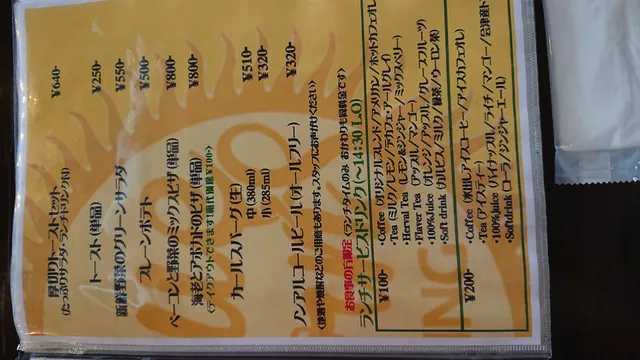 厚切りトーストセット ¥640-
(たっぷりサラダ・ランチドリンク付)
トースト(単品) ¥250-
新鮮野菜のグリーンサラダ ¥550-
プレーンポテト ¥500-
ベーコンと野菜のミックスピザ(単品) ¥800-
海老とアボカドのピザ(単品) ¥800-
<テイクアウトできます!箱代別途¥100->
カールスバーグ(生)
中(380ml) ¥510-
小(285ml) ¥320-
ノンアルコールビール(オールフリー) ¥320-
お食事の方限定(ランチタイムのみ おかわりも同料金です)
ランチサービスドリンク(~14:30 L.O)
¥100-
・Coffee(オリジナルブレンド/アメリカン/ホットカフェオレ)
・Tea(ミルク/レモン/デカフェアールグレイ)
・Herval Tea(レモン&ジンジャー/ミックスベリー)
・Flaver Tea(アップル/マンゴー)
・100%Juice(オレンジ/アップル/グレープフルーツ)
・Soft drink(カルピス/ミルク/緑茶/ウーロン茶)
¥200-
・Coffee(水出しアイスコーヒー/アイスカフェオレ)
・Tea(アイスティー)
・100%Juice(パイナップル/ライチ/マンゴー/会津産ト
・Softdrink(コーラ/ジンジャーエール)